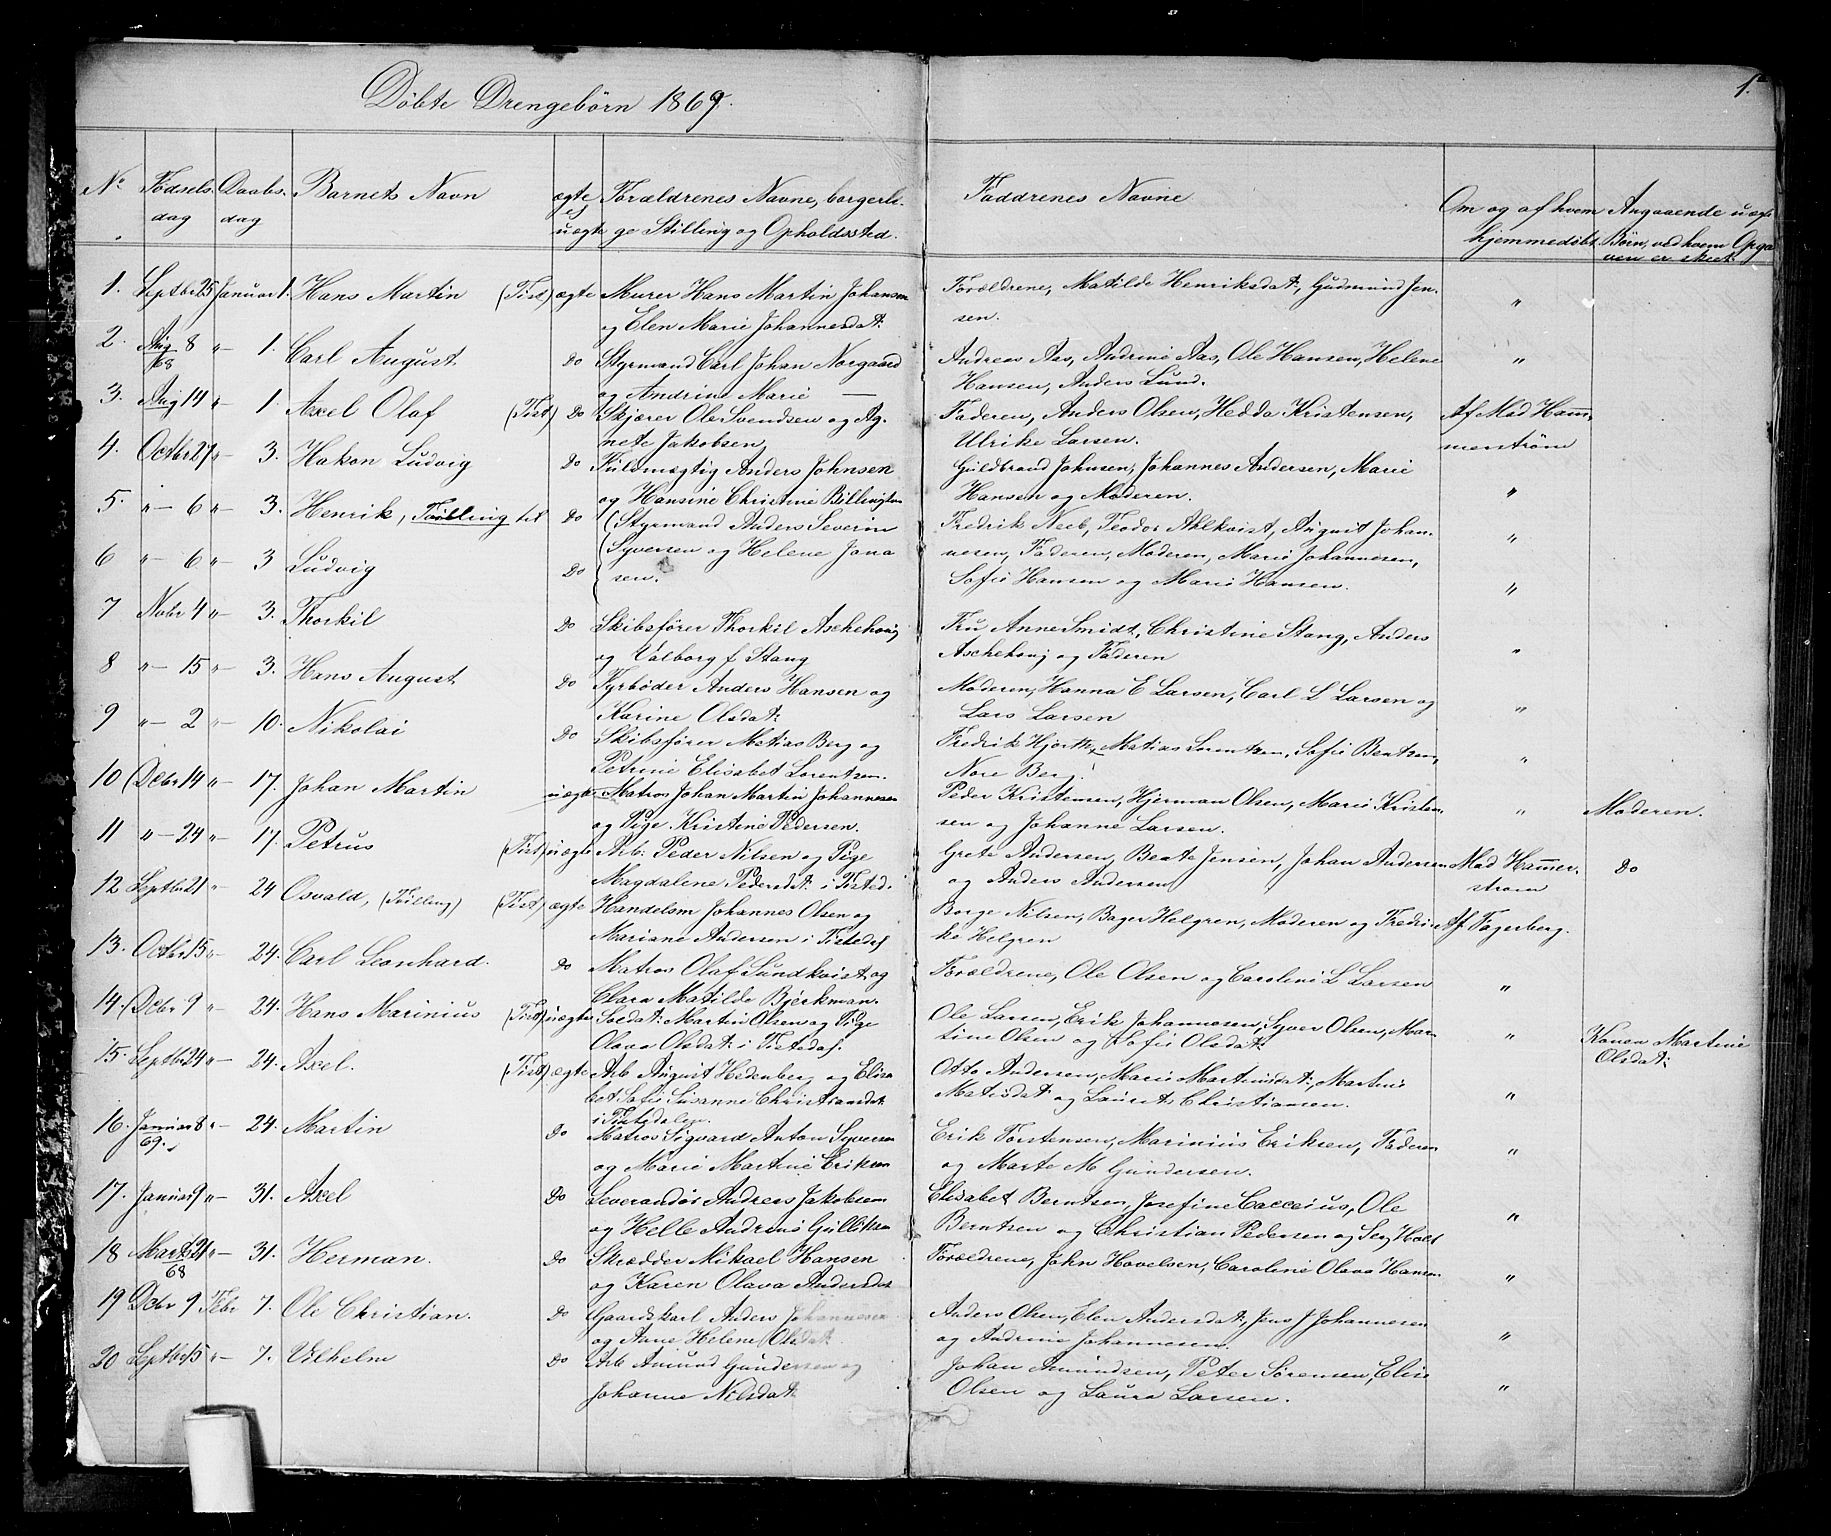 Döbte Drengebörn 1869.
1.
No Födselsdag Daabsdag Barnets Navn ægte ej uægte Forældrenes Navne, borgerlige Stilling og Opholdssted. Faddrenes Navne Om og af hvem hjemmedöbt. Angaaende uægte Börn, ved hvem Opgaven er skeet
1. Septbr 25 Januar 1. Hans Martin (Tist) ægte Murer Hans Martin Johansen Forældrene, Matilde Henriksdat, Gudmund Jen- "
og Elen Marie Johannesdat: sen.
2. Aug 8 " — 1. Carl August Do Styrmand Carl Johan Norgaard Andreas Aas, Andrine Aas, Ole Hansen, Helene "
68 og Andrine Marie — Hansen, Anders Lund.
3. Aug 14 " — 1. Axel Olaf (Tist) Do Skjærer Ole Svendsen og Ag- Faderen, Anders Olsen, Hedda Kristensen, Af Mad Ham-
nete Jakobsen, Ulrike Larsen. merström
4. Octbr 27 " — 3. Hakon Ludvig Do Fuldmægtig Anders Johnsen Guldbrand Johnsen, Johannes Andersen, Marie
og Hansine Christine Billington Hansen og Moderen. "
5. " — 6 " — 3. Henrik, Tvilling til Do Styrmand Anders Severin Fredrik Neeb, Teodor Ahlkvist, August Johan- "
Syversen og Helene Jona nesen, Faderen, Moderen, Marie Johannesen,
6 " — 6 " — 3 Ludvig Do sen. Sofie Hansen og Marie Hansen. "
7 Nobr 4 " — 3. Thorkil Do Skibsförer Thorkil Aschehoug Fru Anne Smidt, Christine Stang, Anders
og Valborg f Stang Aschehoug og Faderen "
8 " — 15 " — 3. Hans August Do Fyrböder Anders Hansen og Moderen, Hanna E Larsen, Carl L Larsen og
Karine Olsdat: Lars Larsen "
9 " — 2 " — 10. Nikolai Do Skibsförer Matias Berg og Fredrik Hjorth, Matias Lorentzen, Sofie Bentsen,
Petrine Elisabet Lorentzen. Nore Berg. "
10 Dcbr 14 " — 17. Johan Martin uægte Matros Johan Martin Johannesen Peder Kristensen, Hjerman Olsen, Marie Kristen- " Moderen.
og Pige Kristine Pedersen. sen og Johanne Larsen.
11 " — 24 " — 17. Petrus (Tist) uægte Arb: Peder Nilsen og Pige Grete Andersen, Beate Jensen, Johan Andersen Mad Hammer- Do
Magdalene Pedersdat: i Tisted. og Anders Andersen strøm
12 Septbr 21 " — 24 Osvald, (Tvilling) (Tist) ægte Handelsm Johannes Olsen og Borge Nilsen, Bager Helgren, Moderen og Fredri- Af Fagerberg.
Mariane Andersen i Tistedaf ke Helgren
13. Octbr 15 " — 24. Carl Leonhard. Do Matros Olaf Sundkvist og Forældrene, Ole Olsen og Caroline L Larsen "
Clara Matilde Bjerkman.
14. Dcbr 9 " — 24. Hans Marinius (Tist) uægte Soldat: Martin Olsen og Pige Ole Larsen, Erik Johannesen, Syver Olsen, Mar- " Konen Martine
Olava Olsdat: i Tistedaf. tine Olsen og Sofie Olsdat: Olsdat:
15. Septbr 24 " — 24. Axel. (Tist) ægte Arb August Hedenberg og Elisa Otto Andersen, Marie Martinsdat:, Martine
bet Sofie Susanne Christiansdat Matisdat og Laurits Christiansen. "
i Tistedalen.
16. Januar 8 " — 24. Martin Do Matros Sigvard Anton Syversen Erik Torstensen, Marinius Eriksen, Faderen
69. og Marie Martine Eriksen og Marte M Gundersen. "
17. Januar 9 " — 31. Axel Do Leverandör Andreas Jakobsen Elisabet Berntsen, Josefine Cocceius, Ole
og Helle Andrine Gulliksen Berntsen og Christian Pedersen og Serg Holst "
18 Marts 21 " — 31. Herman. Do Skrædder Mikael Hansen Forældrene, John Hovelsen, Caroline Olava Hansen
68 og Karen Olava Andersdat "
19 Dcbr 9 Febr 7. Ole Christian. Do Gaardskarl Anders Johannesen Anders Olsen, Elen Andersdat, Jens J Johannesen
og Anne Helene Olsdat. og Andrine Johannesen. "
20 Septbr 15 " — 7. Vilhelm Do Arb Amund Gundersen og Johan Amundsen, Peter Sörensen, Elise
Johanne Nilsdat: Olsen og Laura Larsen. "